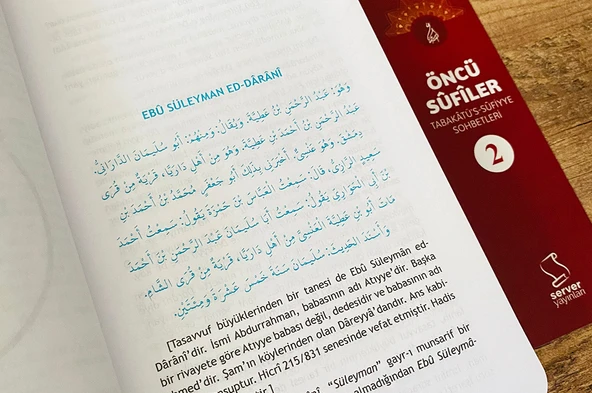 EBÛ SÜLEYMAN ED-DÂRÂNÎ
وَمِنْهُمْ: أَبُو سُلَيْمَانَ الدَّارَانِيُّ. وَهُوَ: عَبْدُ الرَّحْمَنِ بْنُ عَطِيَّةَ وَيُقَالُ:
عَبْدُ الرَّحْمَنِ بْنُ أَحْمَدَ بْنِ عَطِيَّةَ وَهُوَ مِنْ أَهْلِ دَارِيَّا، قَرْيَةٌ مِنْ قُرَى
دِمَشْقَ. وَهُوَ عَنْسِيٌّ أَخْبَرَنِي بِذَلِكَ أَبُو جَعْفَرٍ مُحَمَّدُ بْنُ أَحْمَدَ بْنِ
سَعِيدٍ الرَّازِي، قَالَ: سَمِعْتُ الْعَبَّاسَ بْنَ حَمْزَةَ يَقُولُ: سَمِعْتُ أَحْمَدَ
بْنَ أَبِي الْحَوَارِي يَقُولُ: سَمِعْتُ أَبَا سُلَيْمَانَ عَبْدَ الرَّحْمَنِ بْنَ أَحْمَدَ
بْنِ عَطِيَّةَ الْعَنْسِيَّ مِنْ أَهْلِ دَارِيَّا، قَرْيَةٌ مِنْ قُرَى الشَّامِ. مَاتَ أَبُو
سُلَيْمَانَ سَنَةَ خَمْسَ عَشْرَةَ وَمِئَتَيْنِ. وَأَسْنَدَ الْحَدِيثَ.
[Tasavvuf büyüklerinden bir tanesi de Ebû Süleymân ed-
Dârânî'dir. İsmi Abdurrahman, babasının adı Atıyye'dir. Başka
bir rivayete göre Atıyye babası değil, dedesidir ve babasının adı
hmed'dir. Şam'ın köylerinden olan Dâreyyâ'dandır. Ans kabi-
nsuptur. Hicrî 215/831 senesinde vefat etmiştir. Hadis
tir.]
nî "Süleyman" gayr-ı munsarif bir
almadığından Ebû Süleymâ-
ÖNCÜ
SÛFÎLER
TABAKÂTÜ'S-SÛFİYYE
SOHBETLERİ
2
server
yayınları